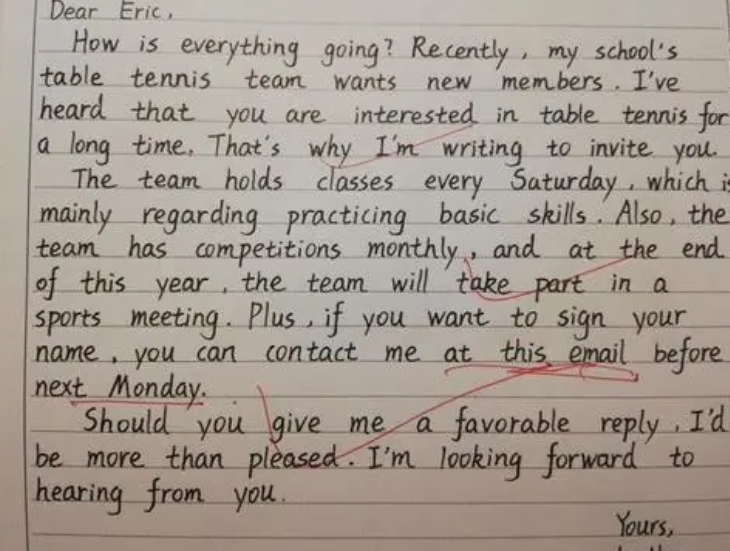 Dear Eric,
How is everything going? Recently, my school's
table tennis team wants new members. I've
heard that you are interested in table tennis for
a long time. That's why I'm writing to invite you.
The team holds classes every Saturday, which is
mainly regarding practicing basic skills. Also, the
team has competitions monthly, and at the end
of this year, the team will take part in a
sports meeting. Plus, if you want to sign your
name, you can contact me at this email before
next Monday.
Should you give me a favorable reply, I'd
be more than pleased. I'm looking forward to
hearing from you.
Yours,